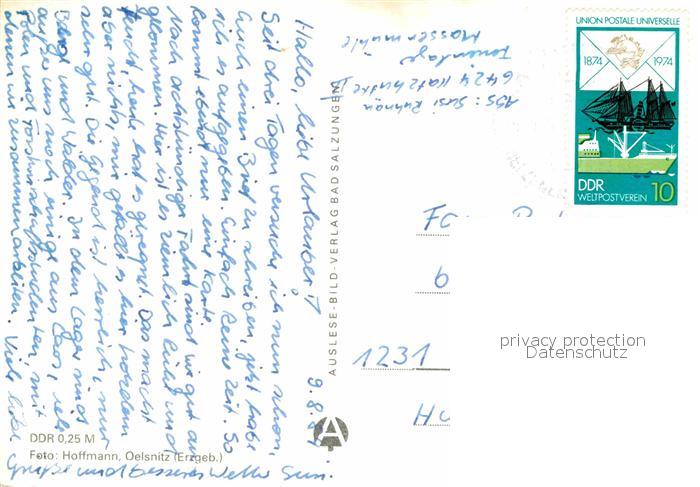 Hallo, liebe Urlauber!
9.8.74
Seit drei Tagen versuche ich nun schon,
Euch einen Brief zu schreiben, jetzt habe
ich es aufgegeben. Einfach keine Zeit. So
kommt ebend nur eine Karte.
Nach achtstündiger Fahrt sind wir gut an-
gekommen. Hier ist es ziemlich kühl und
feucht, heute erst es geregnet. Das macht
aber nichts, mir gefällt es hier trotzdem
sehr gut. Die Gegend ist herrlich, nur
Berge und Wälder. In dem Lager sind
außer uns noch einige aus Laos,
Polen und Studenten, mit
denen wir zusammenarbeiten. Viele liebe
Grüße und besseres Wetter Susi.
DDR 0,25 M
Foto: Hoffmann, Oelsnitz (Erzgeb.)
AUSLESE-BILD-VERLAG BAD SALZUNGEN
A
Abs.: Susi
6424
Ferienlager
Massermühle
UNION POSTALE UNIVERSELLE
1874 1974
DDR 10
WELTPOSTVEREIN
Fa
6
1231
privacy protection
Datenschutz